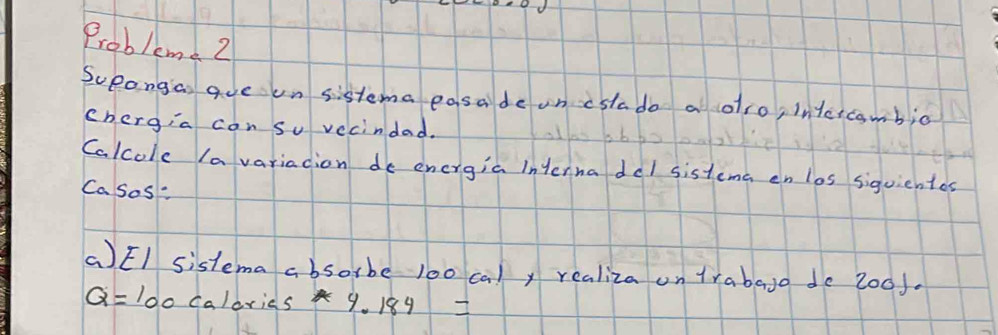 Problema 2
Suponga que un sistema pasa de un estado a otro, intercambio
energía con su vecindad.
Calcule la variación de energía interna del sistema en los siguientes
casos:
a) El sistema absorbe 100 cal y realiza un trabajo de 200J.
Q = 100 calorias * 4.184 =